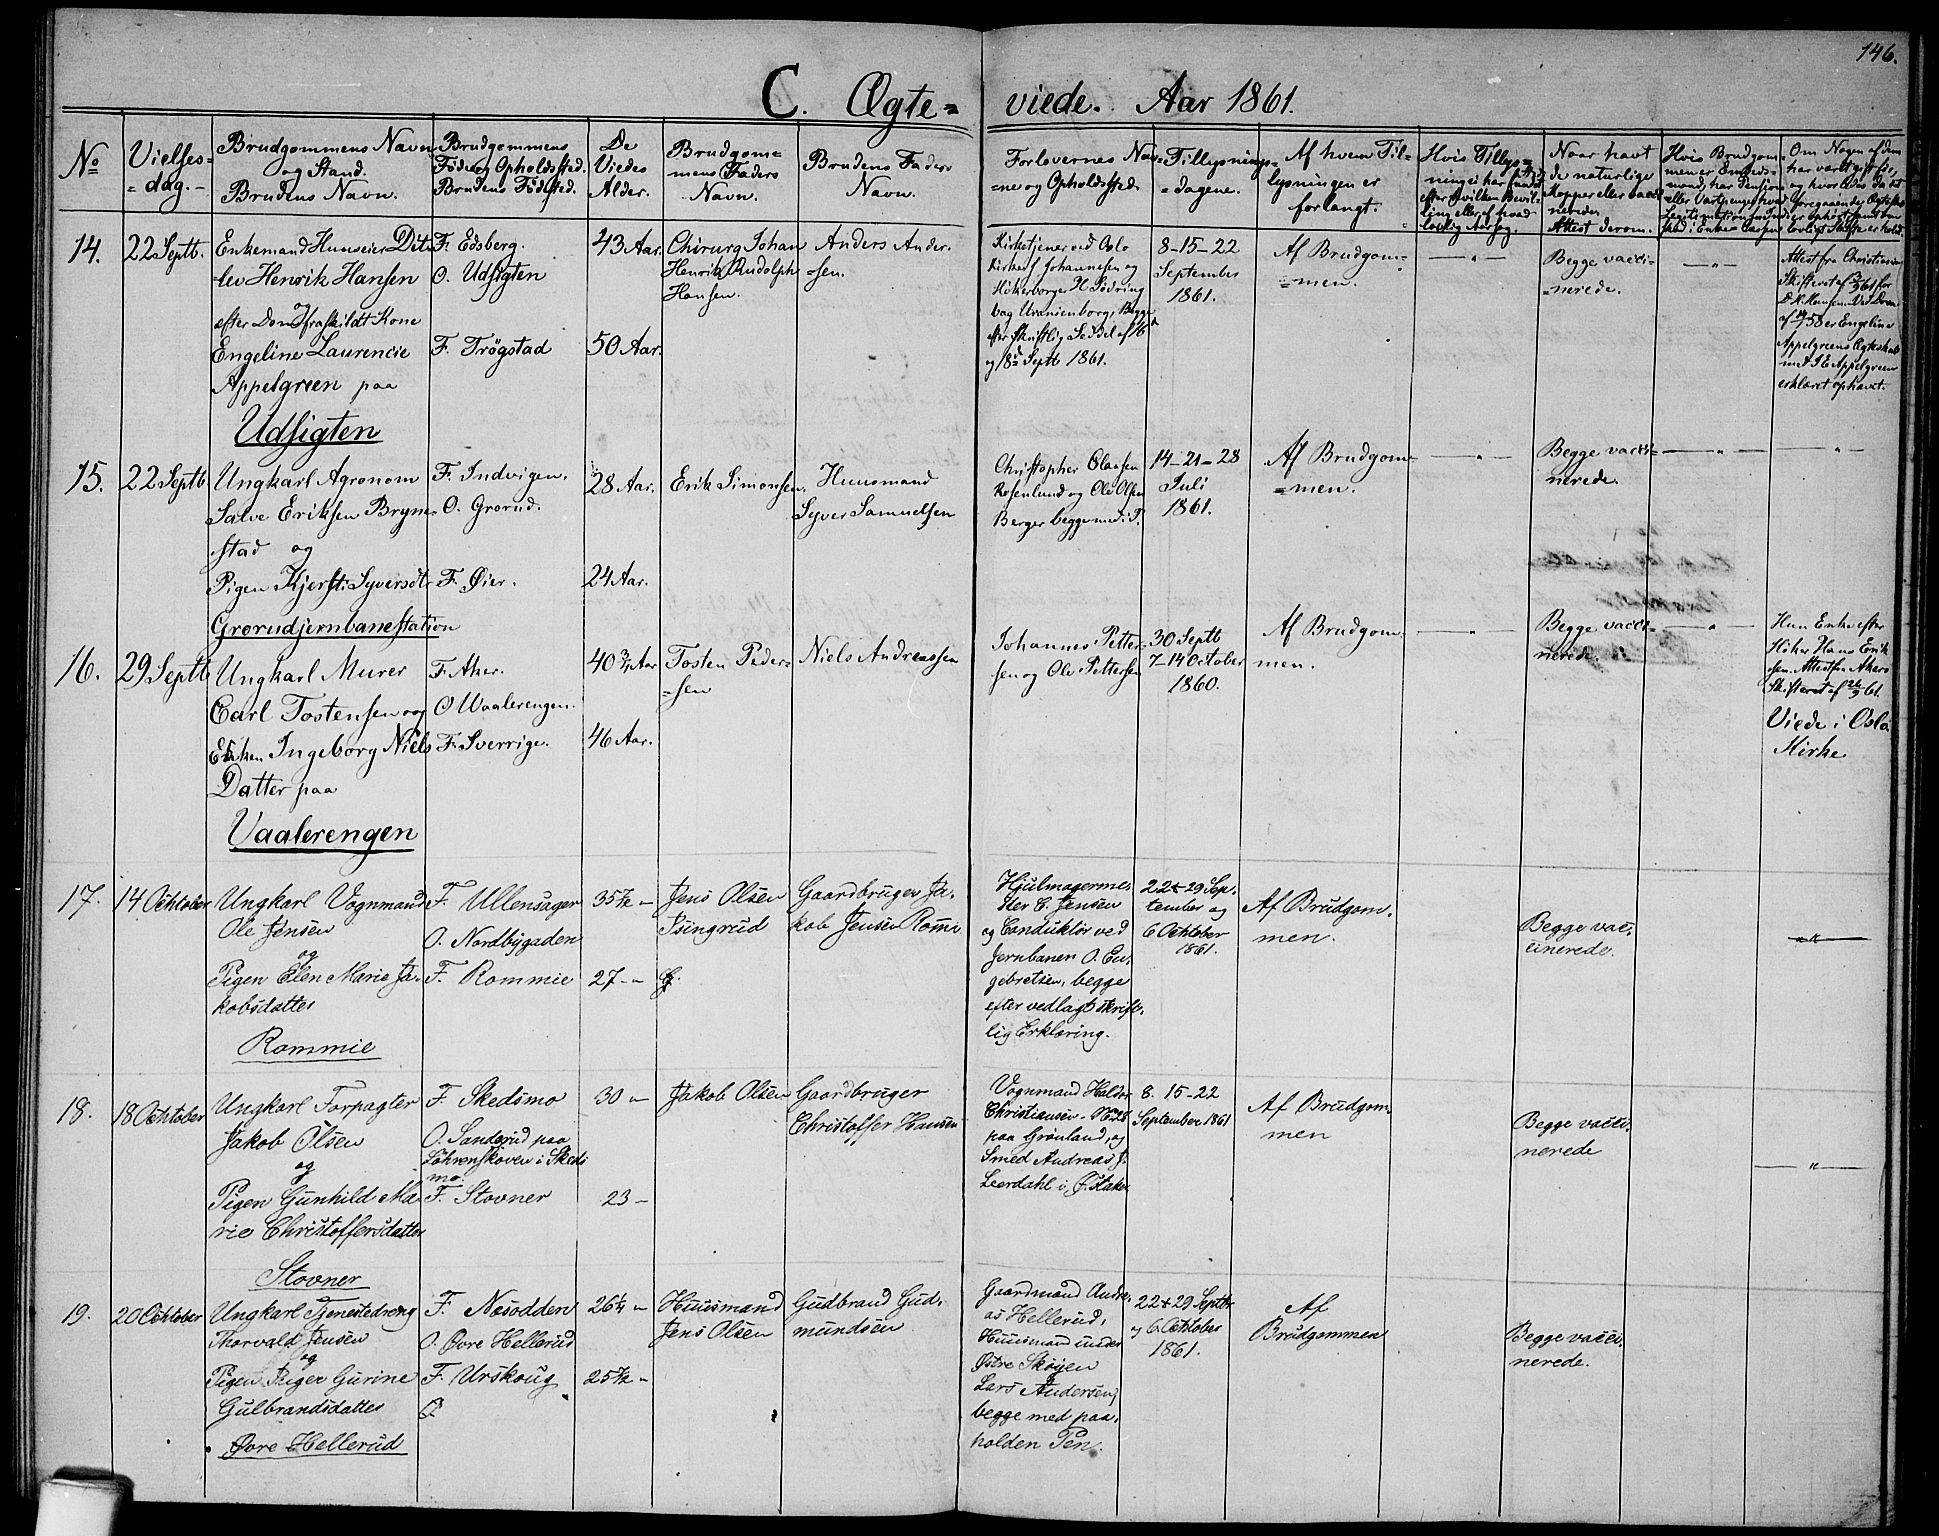 146.
C. Ægte= viede. Aar 1861.
No
Vielses=
=dag.-
Brudgommens Navn
og Stand.
Brudens Navn.
Brudgommens
Føde og Opholdssted.
Brudens Fødested.
De
Viedes
Alder.
Brudgom=
mens Faders
Navn.
Brudens Faders
Navn.
Forlovernes Nav=
=ne og Opholdssted.
Tillysnings=
=dagene.
Af hvem Til=
lysningen er
forlangt.
Hvis Tillys=
ning ei har fundet Sted
efter hvilken Bevil=
ling eller af hvad
lovlig Aarsag.
Naar havt
de naturlige
Kopper eller vacci
nerede.
Attest derom.
Hvis Brudgom=
men er Embeds=
mand, har Pension
eller Vartpenge, hvad
Legitimation for Ind
skud i Enke-Cassen
Om Nogen af dem
har været gift før,
og hvorledes da det
foregaaende Ægteskab
er ophørt, samt om
lovligt Skifte er holdt.
14.
22 Septb.
Enkemand Huuseier Dit=
lev Henrik Hansen
og
efter Dom fraskildt Kone
Engeline Laurencie
Appelgreen paa
Udsigten
F. Edsberg.
O. Udsigten
F. Trøgstad
43 Aar.
50 Aar.
Chirurg Johan
Henrik Rudolph
Hansen.
Anders Ander=
sen.
Kirketjener ved Oslo
Kirke J Johannesen og
Høkerborger H. Södring
bag Uranienborg, Begge
efter skriftlig
og 18de Septb 1861.
8-15-22
September
1861.
Af Brudgom=
=men.
— " —
Begge vacci=
=nerede.
— " —
Attest fra Christiania
Skifteret af 61 for
D. H. Hansen. Ved Dom
af 58 er Engeline
Appelgreens Ægteskab
med J E Appelgreen
erklæret ophævet.
15.
22 Septb
Ungkarl Agronom
Salve Eriksen Bryne=
stad og
Pigen Kjersti Syversdtr
Grorudjernbanestation
F. Indvigen.
O. Grorud.
F. Øier.
28 Aar.
24 Aar.
Erik Simonsen.
Huusmand
Syver Samuelsen
Christopher Olausen
Rosenlund og Ole Olsen
Berger begge med i P.
14-21-28
Juli
1861.
Af Brudgom=
=men.
— " —
Begge vacci=
nerede.
— " —
— " —
16.
29 Septb
Ungkarl Murer
Carl Tostensen og
Enken Ingeborg Niels
Datter paa
Vaalerengen
F. Aker.
O Vaalerengen.
F. Sverrige.
40 3/4 Aar
46 Aar.
Tosten Peder=
=sen
Niels Andreassen
Johannes Petter=
sen og Ole Pettersen
30 Septb
7-14 October
1860.
Af Brudgom=
men.
— " —
Begge vacci=
nerede.
— " —
Hun Enke efter
Høker Hans Erik
sen. Attest fra Akers
Skifteret af 26/9 61.
Viede i Oslo
Kirke
17.
14 Ochtober
Ungkarl Vognmand
Ole Jensen
og
Pigen Elen Marie Ja-
kobsdatter
Rommie
F. Ullensager
O. Nordbygaden
F. Rommie
35 1/2 "
27 - "
Jens Olsen
Isingrud
Gaardbruger Ja-
kob Jensen Romi
Hjulmagerme-
ster C. Jensen
og Conduktør ved
Jernbanen O. En-
gebretsen, begge
efter vedlagt skrift-
lig Erklæring.
22 & 29 Sep-
tember og
6 Ochtober
1861.
Af Brudgom-
men.
Begge vac-
cinerede.
— " —
18.
18 Ochtober
Ungkarl Forpagter
Jakob Olsen
og
Pigen Gunhild Ma-
rie Christoffersdatter
Stovner
F. Skedsmo
O. Sanderud paa
Løhrenskoven i Skeds
mo.
F. Stovner
30 "
23 -
Jakob Olsen
Gaardbruger
Christoffer Hansen
Vognmand Haldor
Christiansen No 28
paa Grønland, og
Smed Andreas J.
Leerdahl i Ø. Aker
8. 15-22
September 1861
Af Brudgom-
men
Begge vacci-
nerede
— " —
19.
20 Ochtober
Ungkarl Tjenestedreng
Thorvald Jensen
og
Pigen Inger Gurine
Gulbrandsdatter
Øvre Hellerud
F. Næsodden
O. Øvre Hellerud
F. Urskoug
O.
26 1/4 "
25 1/2 "
Huusmand
Jens Olsen
Gudbrand Gud-
mundsen
Gaardmand Andre-
as Hellerud,
Huusmand under
Østre Skøyen
Lars Andersen,
begge med paa-
holden Pen.
22 & 29 Septbr
og 6 Ochtober
1861.
Af
Brudgommen
Begge vacci-
nerede.